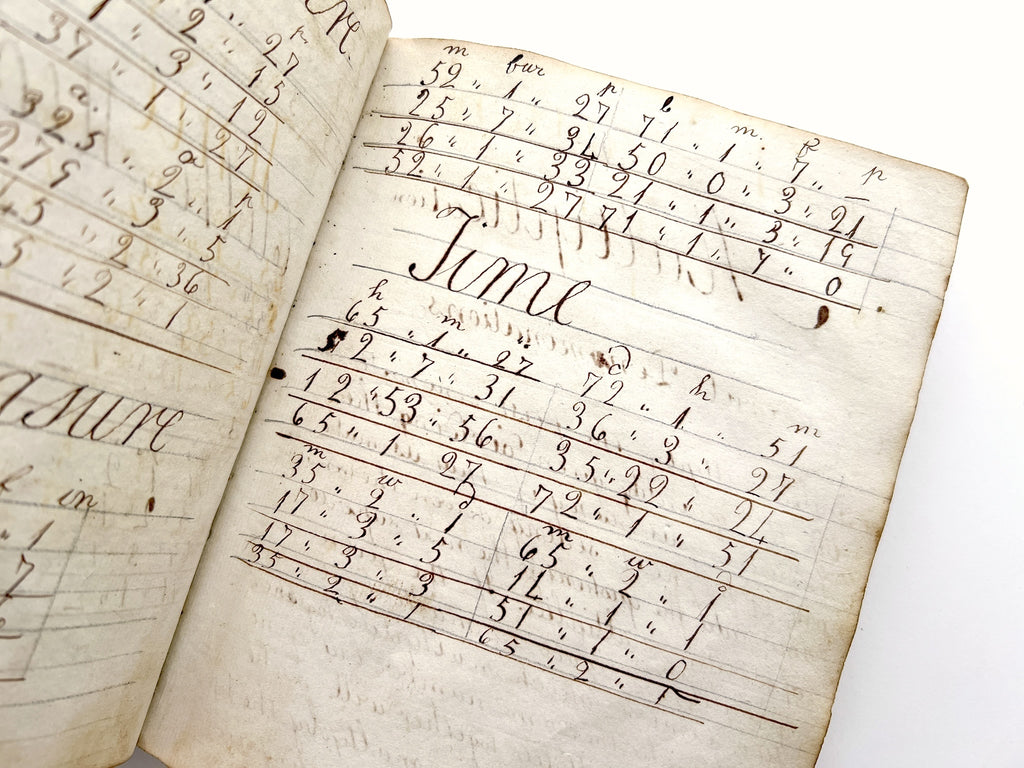 re.
2 " 27
37 " 3 " 15
1 " 12
" 27
a.
325 a p
279 " 2 " 1
45 " 3 " 5
5 " 2 " 36
" 2 " 1
asure
f in
" 1
7
m bur p
52 " 1 " 27
25 " 7 " 31
26 " 1 " 33
52 " 1 " 27
l m. f p
71 " 1 " 7 "
50 " 0 " 3 " 21
21 " 1 " 3 " 19
71 " 1 " 7 " 0
Time
h m
65 " 1 " 27
52 " 7 " 31
12 " 53 " 56
65 " 1 " 27
d h m
72 " 1 " 51
36 " 3 " 27
35 " 22 " 24
72 " 1 " 51
m w d
35 " 2 " 1
17 " 3 " 5
17 " 3 " 3
35 " 2 " 1
m w d
65 " 2 " 1
14 " 1 " 1
51 " 1 " 0
65 " 2 " 1